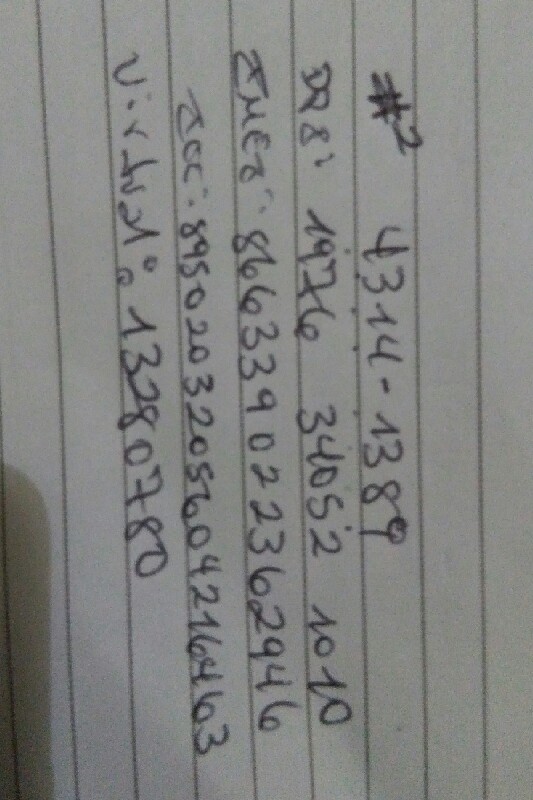 #2 4314-1389
DPI: 1976 34052 1010
IMEI: 866339022362946
ICC: 8950203205604216463
Virtual: 13280780